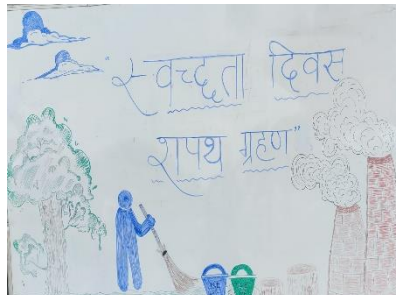 "स्वच्छता दिवस
शपथ ग्रहण"